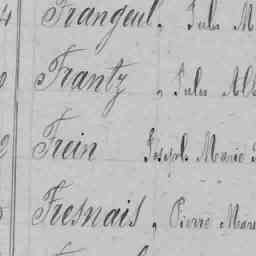 Frangeul, Jules M
Frantz, Jules Alb
Frein Joseph Marie
Fresnais, Pierre Marie